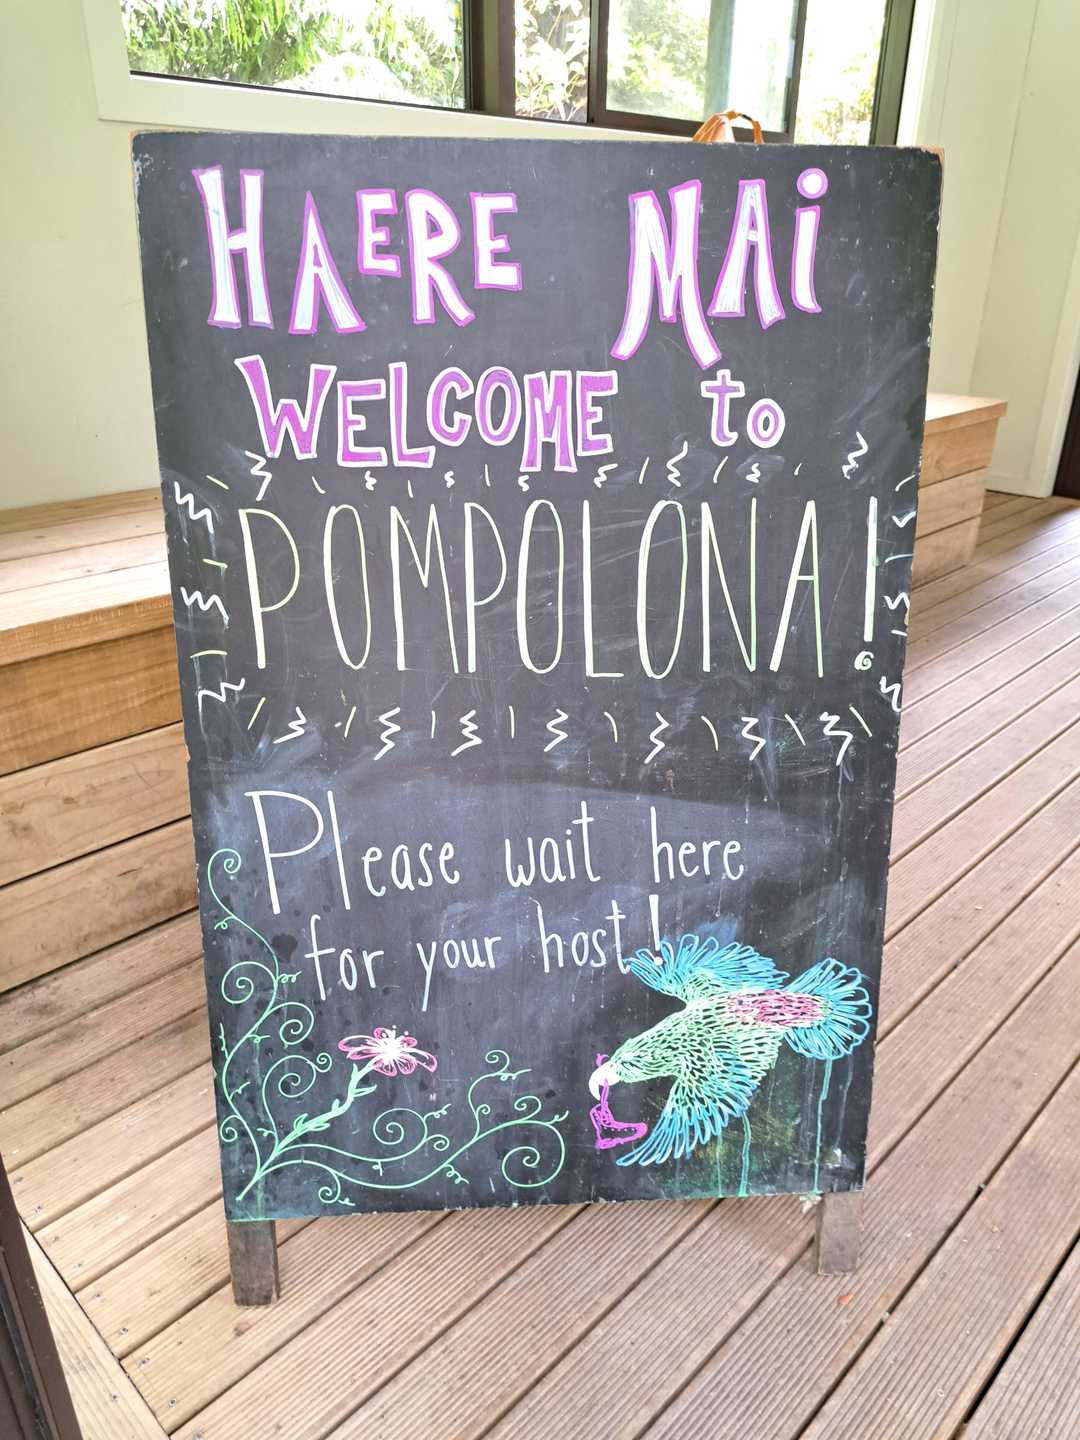 HAERE MAi
WELCOME to
POMPOLONA!
Please wait here
for your host!